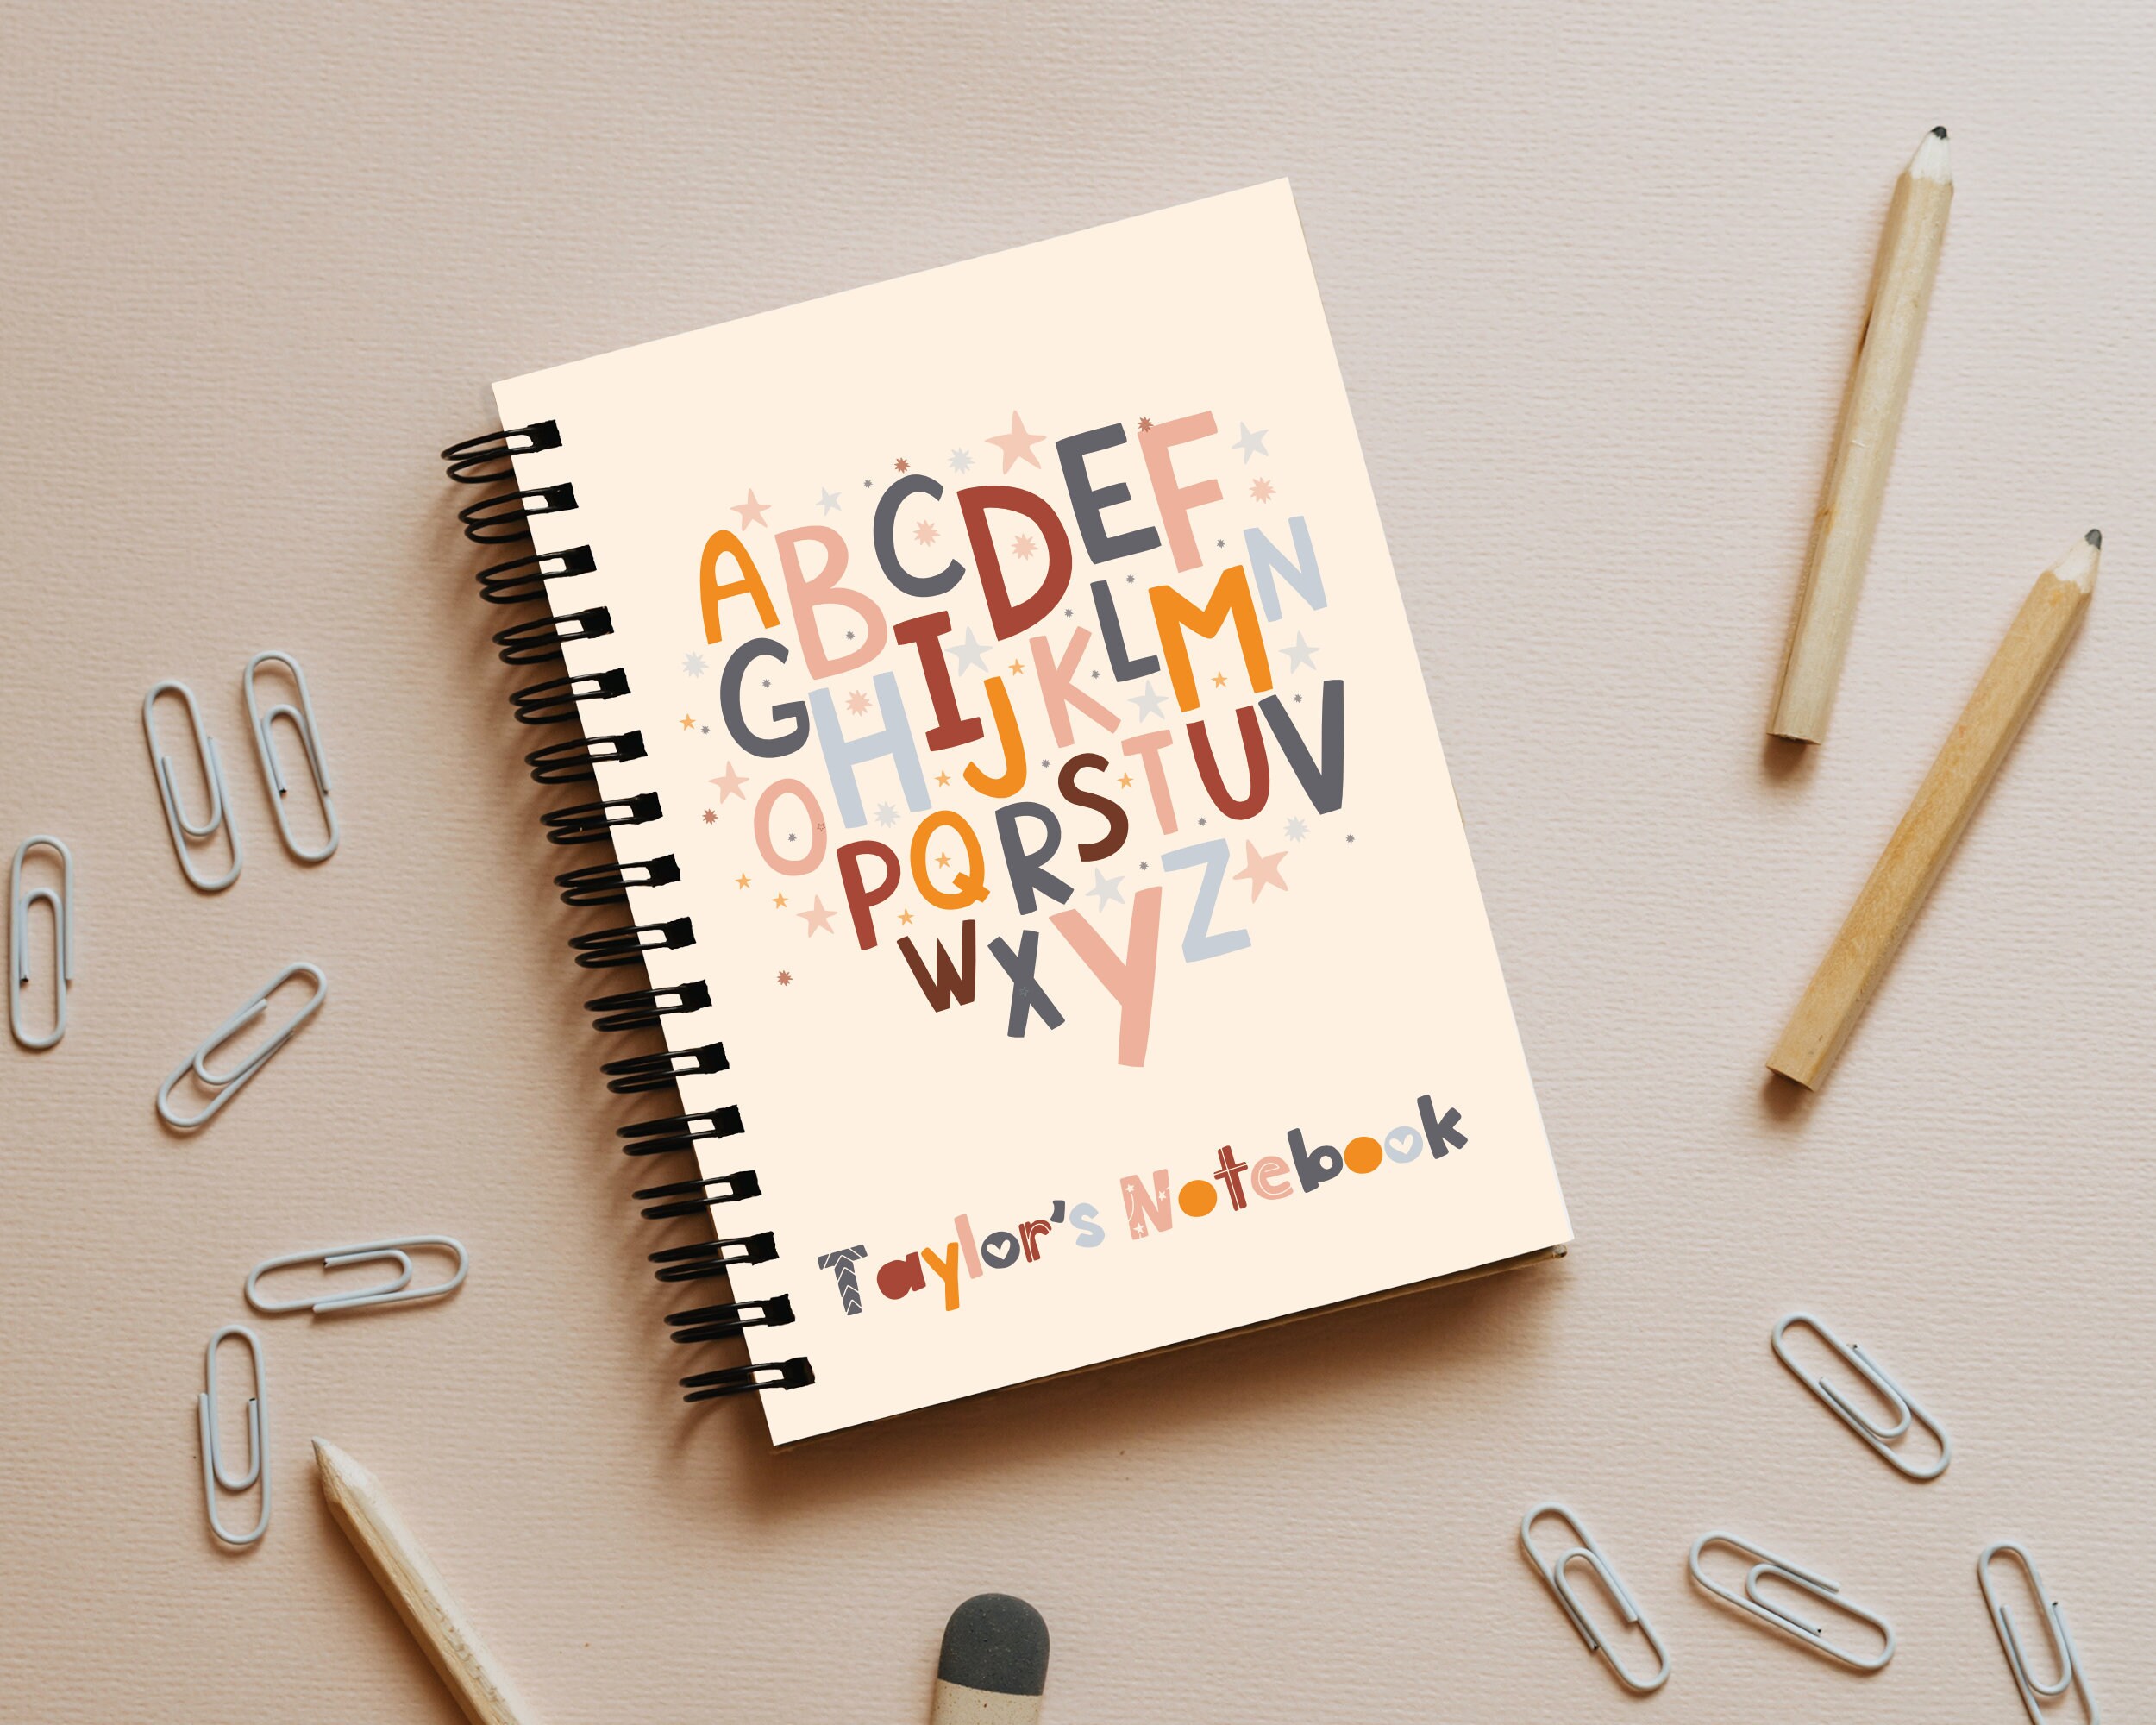 ABCDEF
GHIJKLMN
OPQRSTUV
WXYZ
Taylor's Notebook